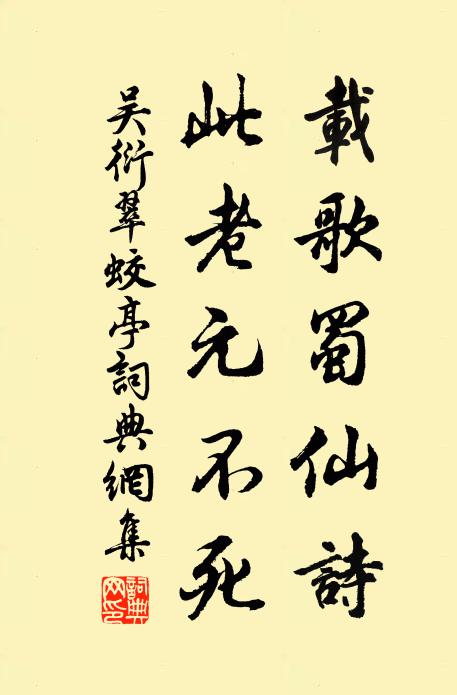 載歌蜀仙詩
此老元不死
吴衍翠蛟亭詞典網集
詞典網印